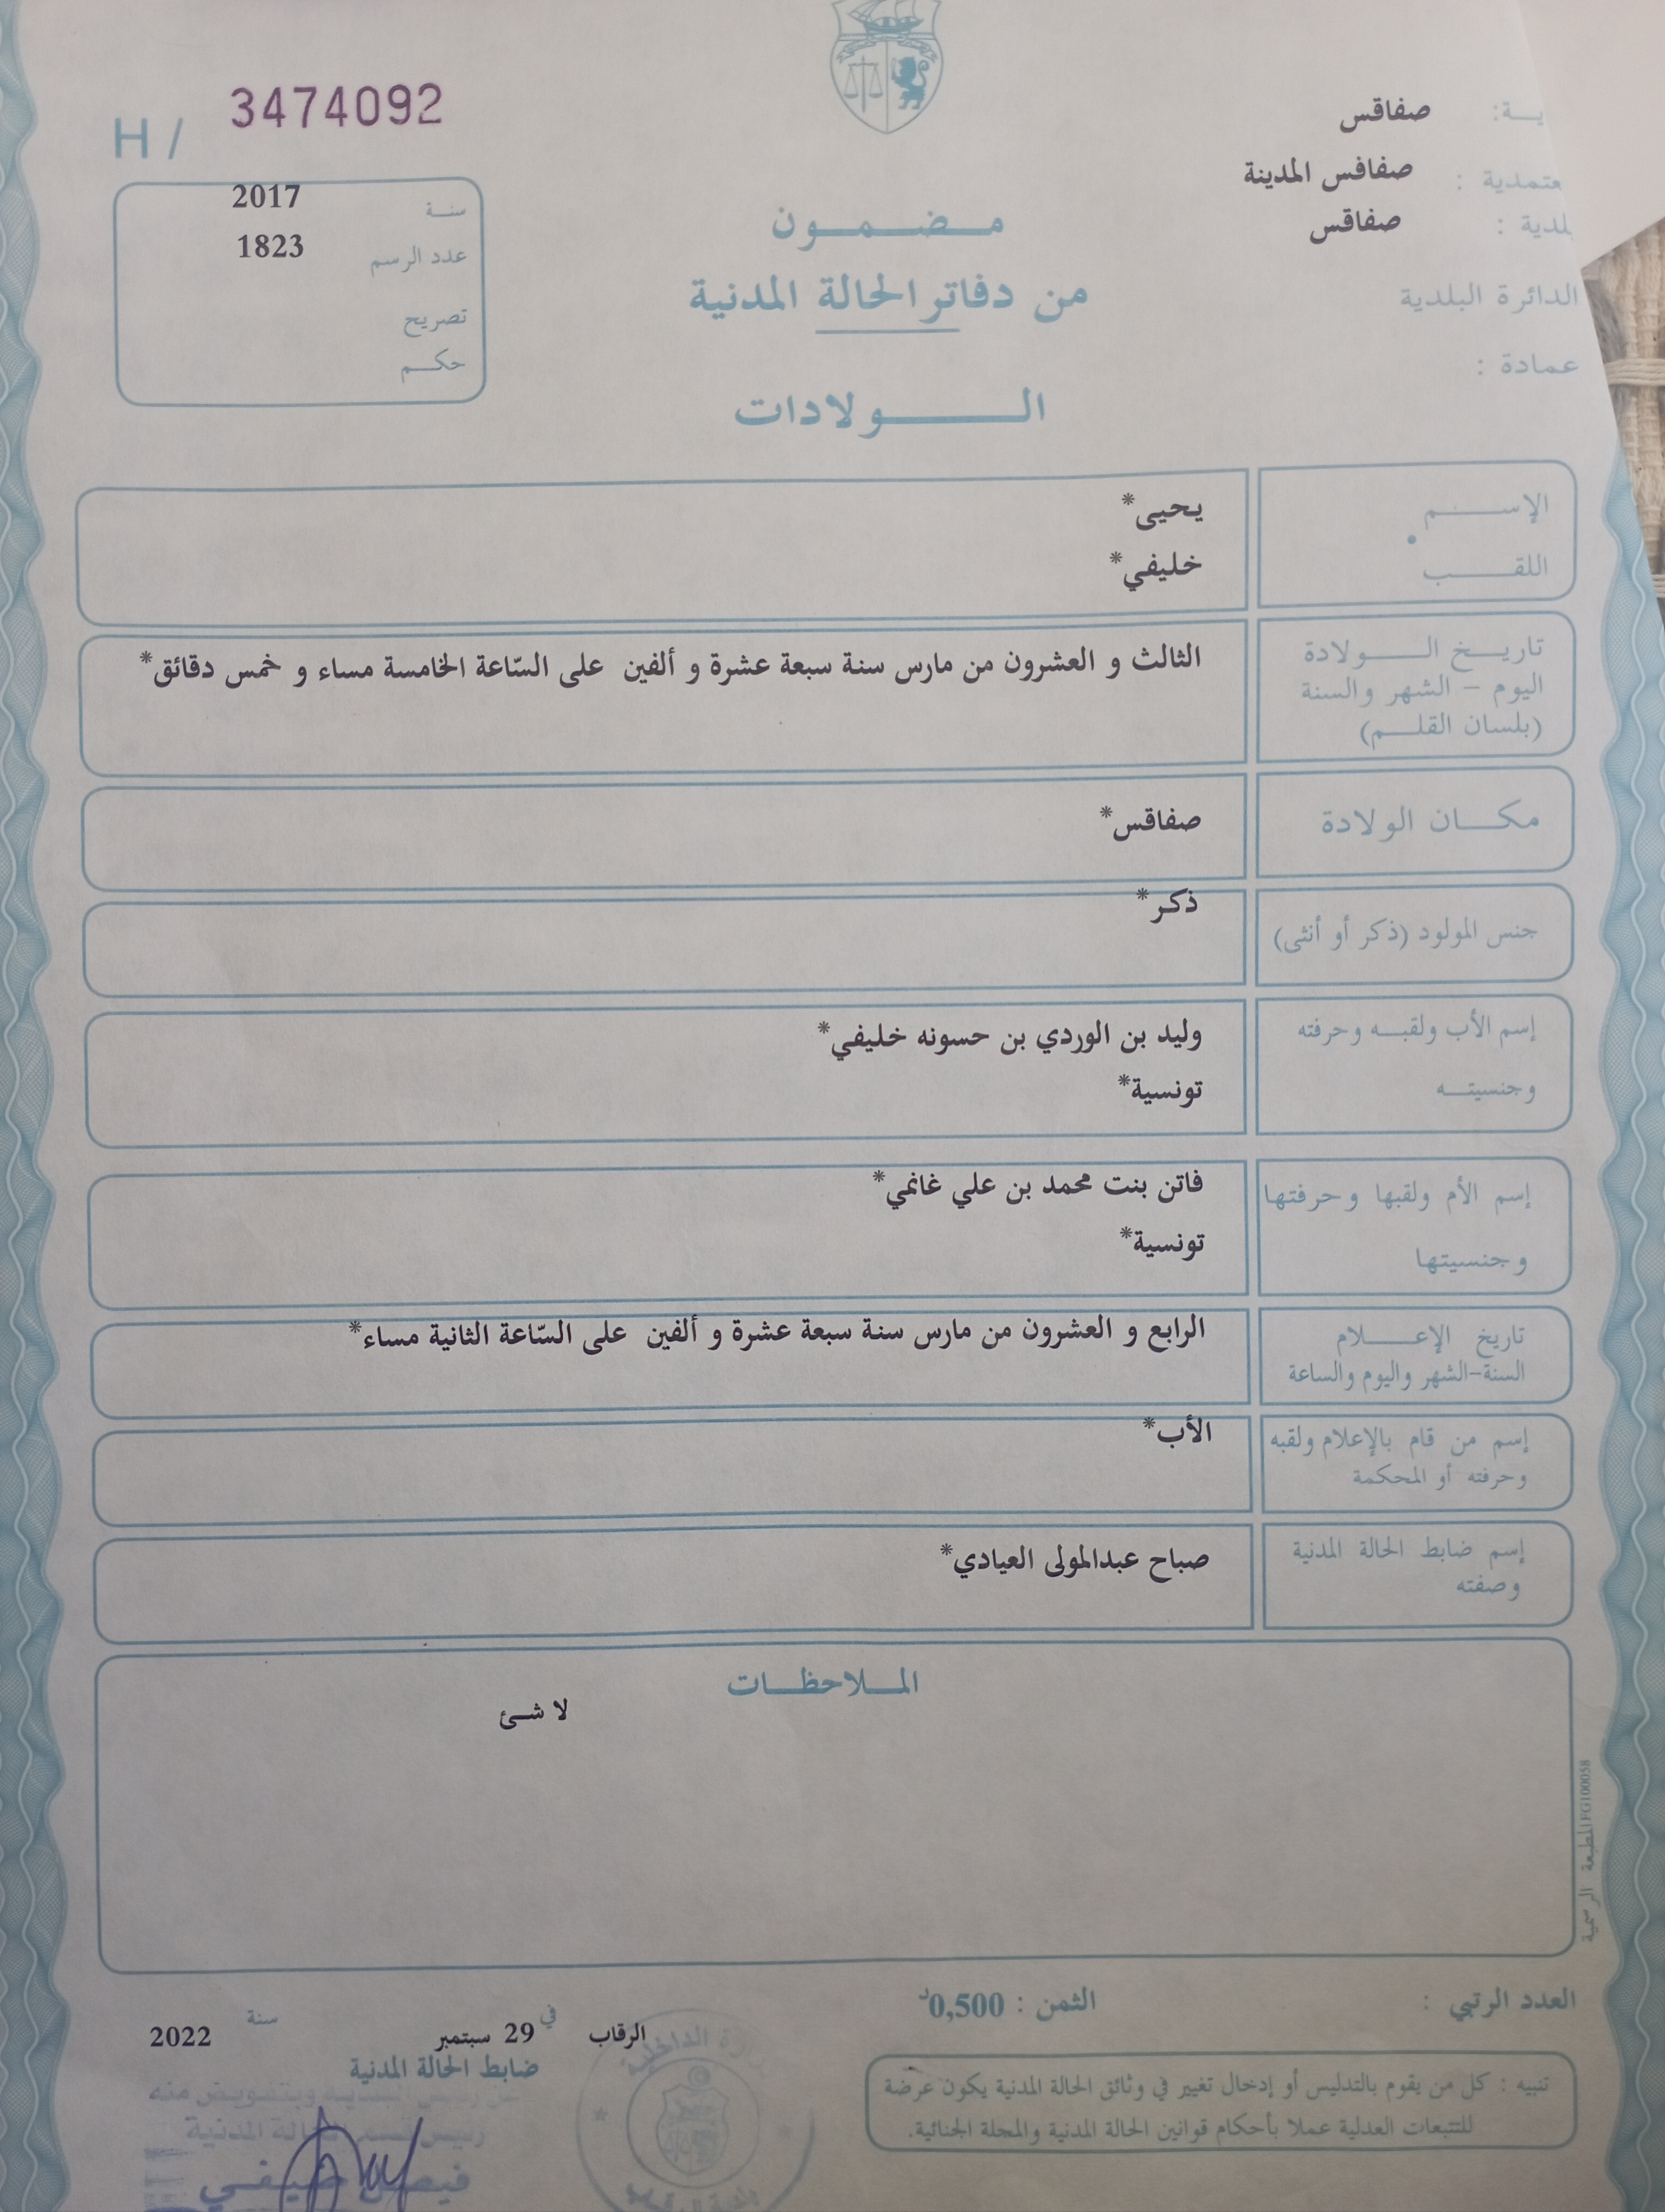 H / 3474092
صفاقس
صفاقس المدينة
صفاقس
الدائرة البلدية
عمادة :
سنة 2017
عدد الرسم 1823
تصريح
حكم
مضمون
من دفاتر الحالة المدنية
الولادات
الإسم يحيى*
اللقب خليفي*
تاريخ الولادة
اليوم – الشهر والسنة
(بلسان القلم)
الثالث و العشرون من مارس سنة سبعة عشرة و ألفين على السّاعة الخامسة مساء و خمس دقائق*
مكان الولادة صفاقس*
جنس المولود (ذكر أو أنثى) ذكر*
إسم الأب ولقبه وحرفته وليد بن الوردي بن حسونه خليفي*
وجنسيته تونسية*
إسم الأم ولقبها وحرفتها فاتن بنت محمد بن علي غانمي*
وجنسيتها تونسية*
تاريخ الإعلام
السنة-الشهر واليوم والساعة
الرابع و العشرون من مارس سنة سبعة عشرة و ألفين على السّاعة الثانية مساء*
إسم من قام بالإعلام ولقبه
وحرفته أو المحكمة
الأب*
إسم ضابط الحالة المدنية
وصفته
صباح عبدالمولى العيادي*
الملاحظات
لا شئ
المطبعة الرسمية FG100058
العدد الرتبي :
الثمن : 0,500د
الرقاب في 29 سبتمبر سنة 2022
ضابط الحالة المدنية
تنبيه : كل من يقوم بالتدليس أو إدخال تغيير في وثائق الحالة المدنية يكون عرضة
للتتبعات العدلية عملا بأحكام قوانين الحالة المدنية والمجلة الجنائية.